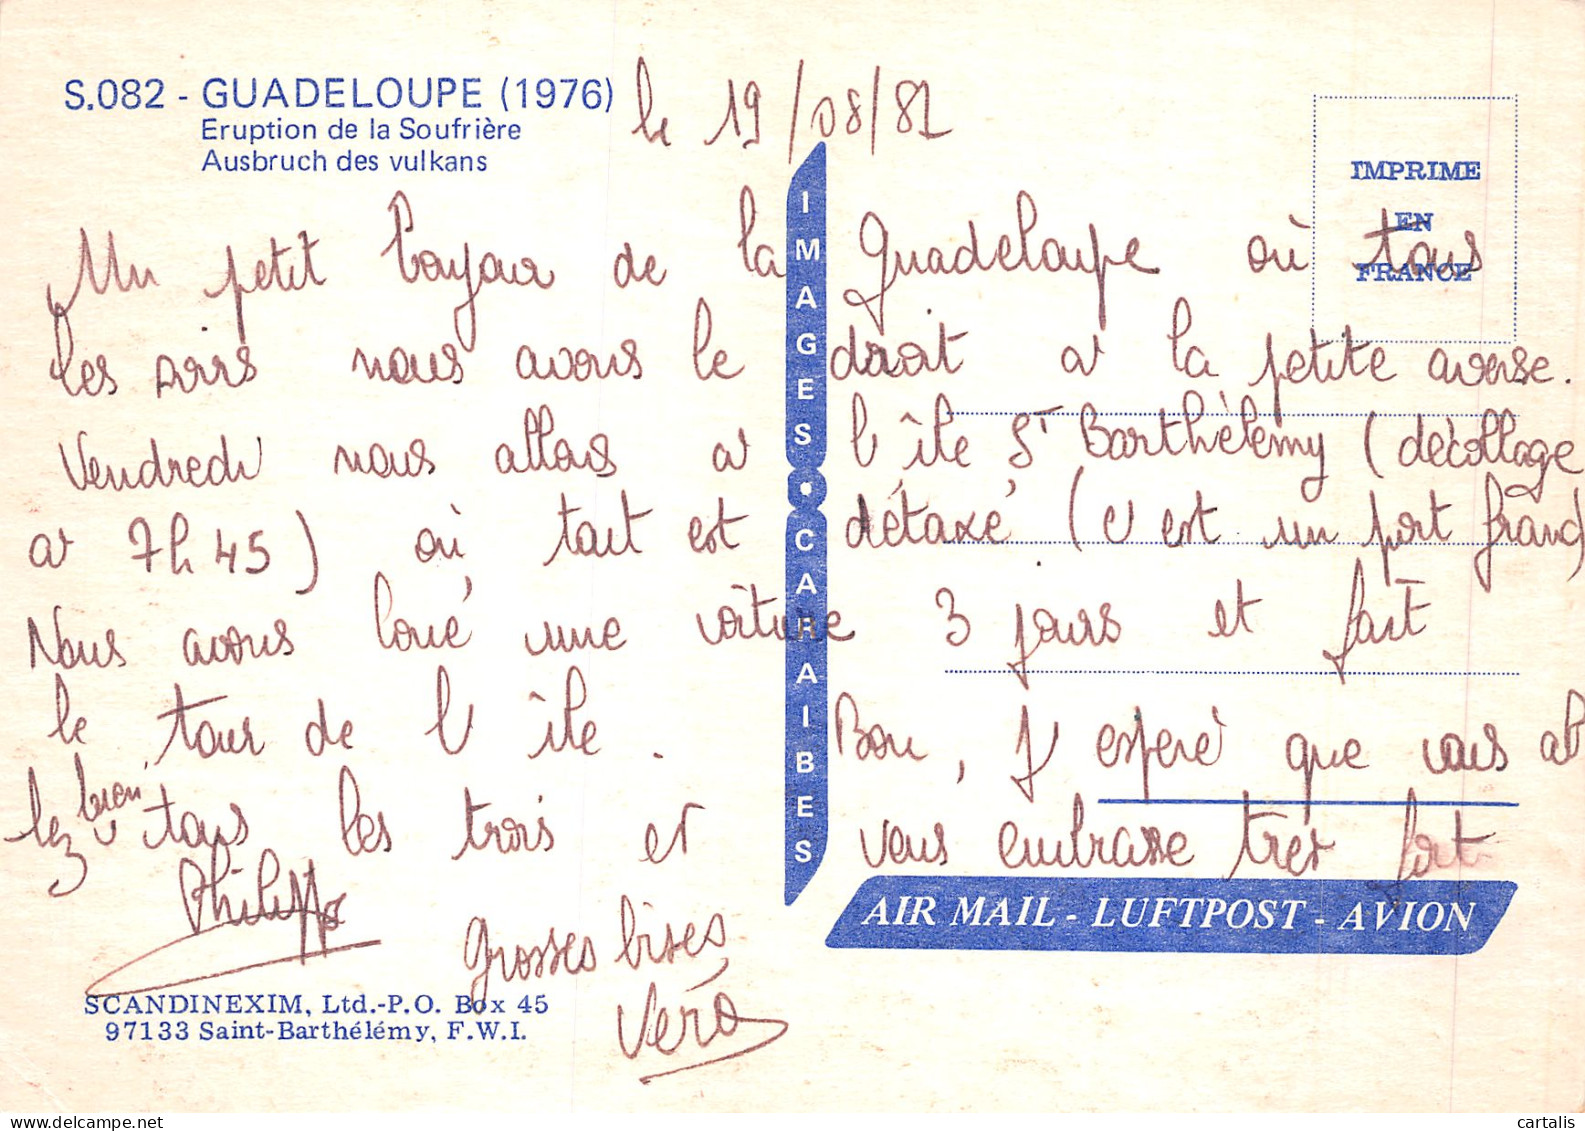 S.082 - GUADELOUPE (1976)
Eruption de la Soufrière
Ausbruch des vulkans
le 19/08/82
IMPRIME
EN
FRANCE
IMAGES • CARAIBES
Un petit bonjour de la Guadeloupe où tous
les soirs nous avons le droit à la petite averse.
Vendredi nous allons à l'île St Barthélémy (décollage
à 7h45) où tout est détaxé (c'est un port franc)
Nous avons loué une voiture 3 jours et fait
le tour de l'île. Bon, j'espère que vous al
lez bien tous les trois et vous embrasse très fort
Philippe
Grosses bises,
Véro
AIR MAIL - LUFTPOST - AVION
SCANDINEXIM, Ltd.-P.O. Box 45
97133 Saint-Barthélémy, F.W.I.
cartalis